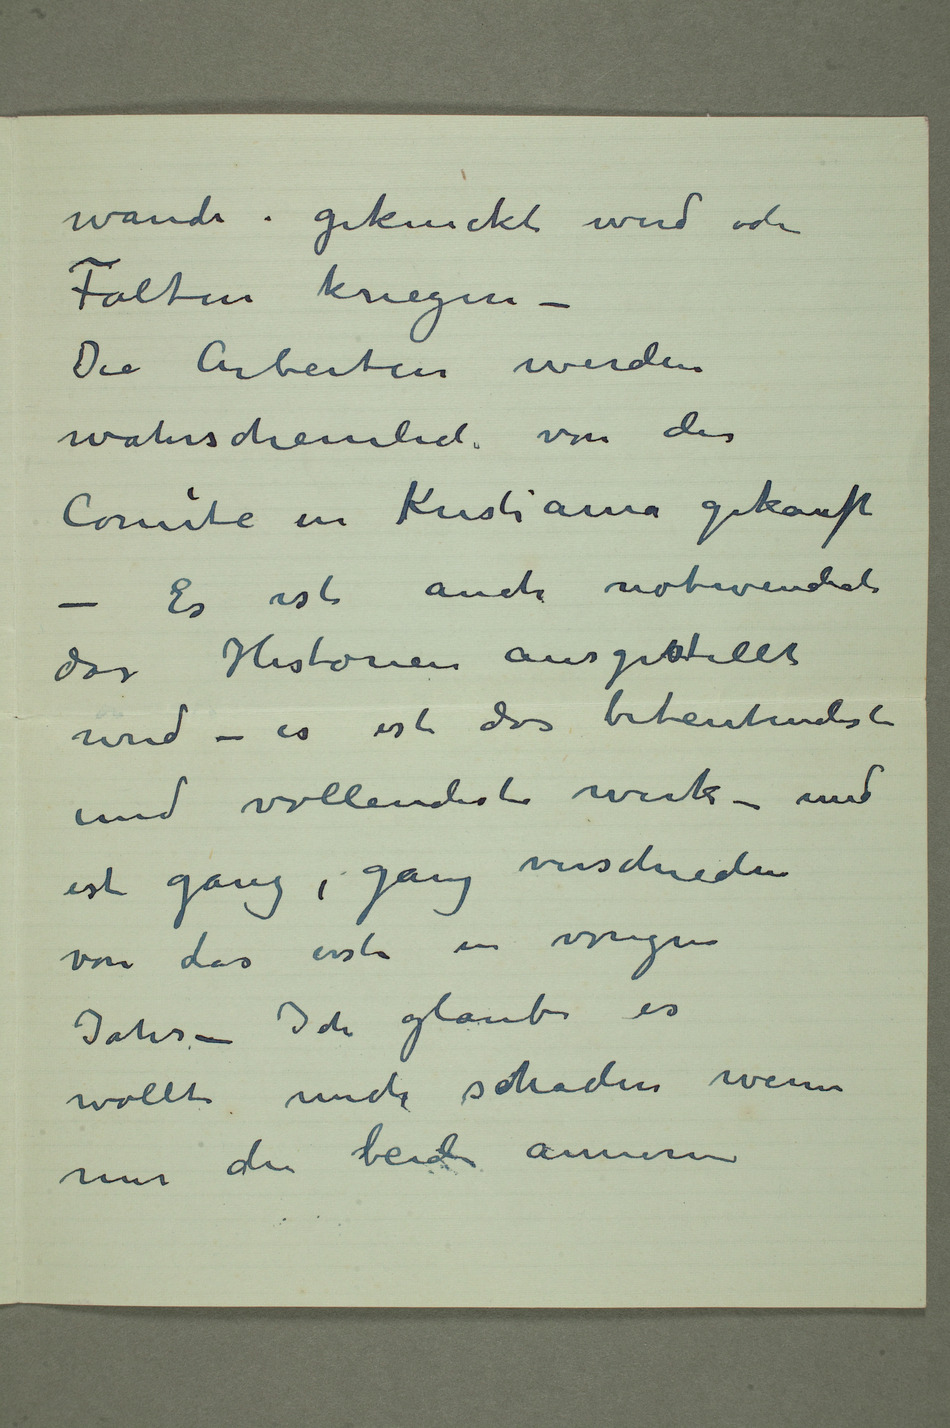 wande . geknickt wird oder
Falten kriegen –
Die Arbeiten werden
wahrscheinlich von der
Comité in Kristiania gekauft
– Es ist auch notwendich
das Historien ausgestellt
wird – es ist das beteutendeste
und vollendeste werk – und
ist ganz, ganz verschieden
von das erste in vorigen
Jahr – Ich glaube es
wollte nicht schaden wenn
nur die beide anneren